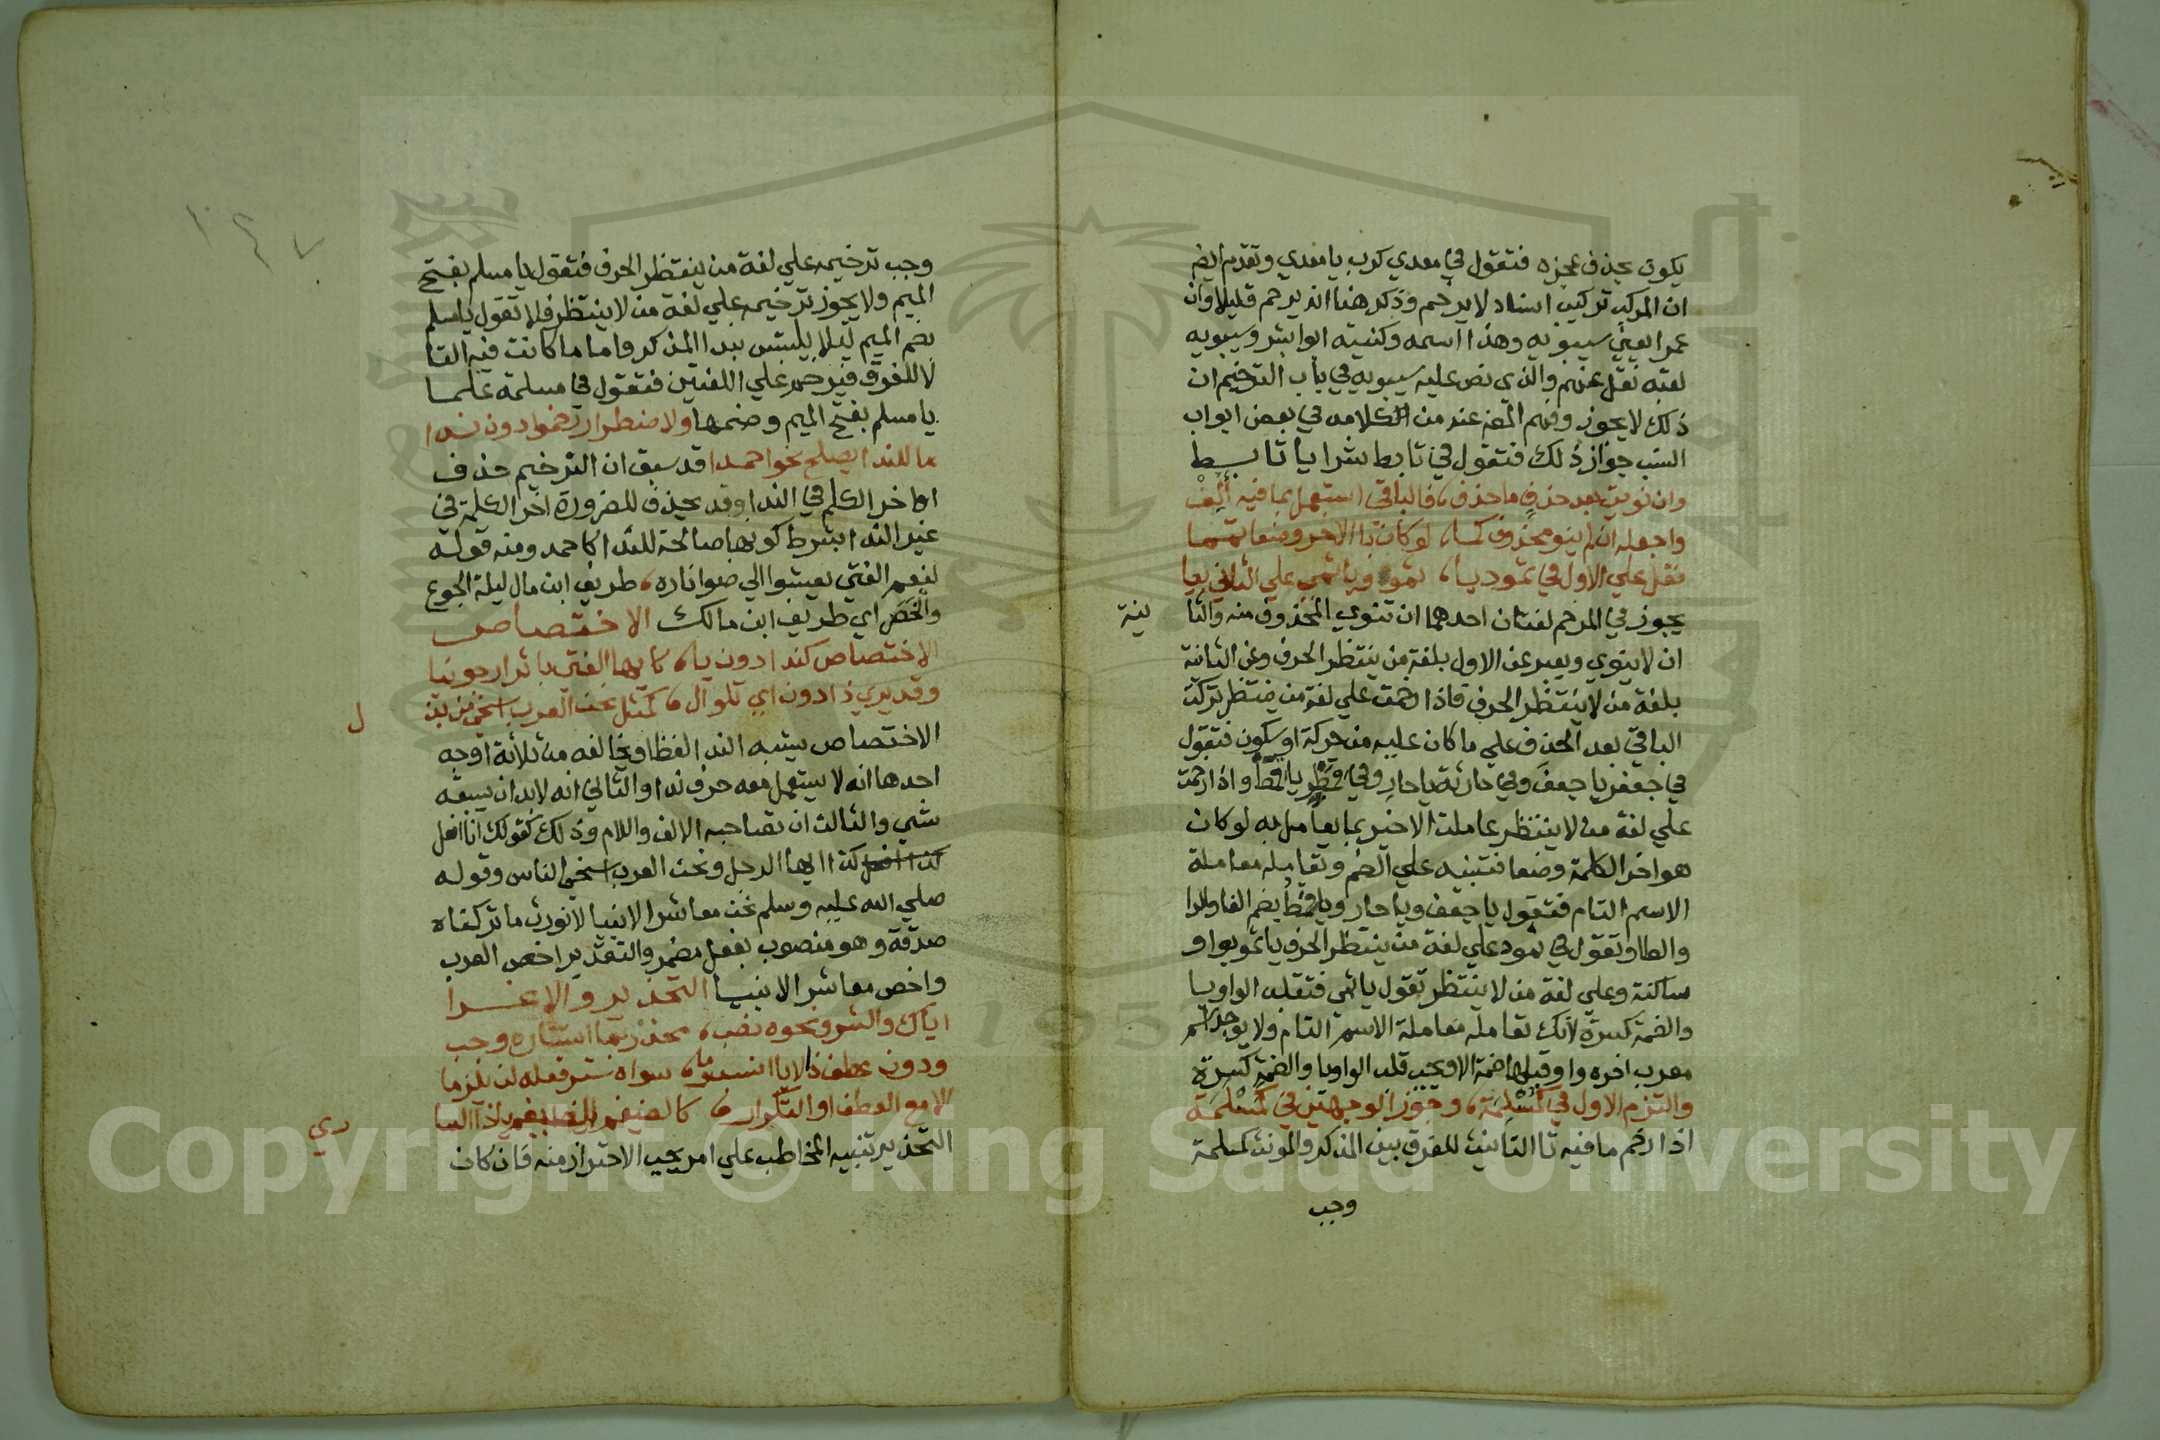 يكون بحذف عجزه فتقول في معدي كرب يا معدي وتقدم ايضم
ان المركب تركيب اسناد لا يرخم وذكر هنا انه يرخم قليلا وان
عمرا يعني سيبويه وهذا اسمه وكنيته ابوا بشر وسيبويه
لقبه نقل عنهم والذي نص عليه سيبويه في باب الترخيم ان
ذلك لا يجوز وفهم المص عنه من كلامه في بعض ابواب
النسب جواز ذلك فتقول في تابط شرا يا تابط
وان نويت بعد حذف ما حذف، فالباقي استعمل بما فيه ألف
واجعله ان لم ينو محذوف كما، لو كان بالاخر وضعا تمما
فقل علي الاول في ثمود يا، ثمو ويا ثمي علي الثاني بيا
يجوز في المرخم لغتان احدهما ان تنوي المحذوف منه والثا
نية
ان لا ينوي ويعبر عن الاول بلغة من ينتظر الحرف وعن الثانية
بلغة من لا ينتظر الحرف فاذا رخمت علي لغة من ينتظر تركت
الباقي بعد الحذف علي ما كان عليه من حركة او سكون فتقول
في جعفر يا جعف وفي حارثة يا حار وفي قمطر يا قمط واذا رخمت
علي لغة من لا ينتظر عاملت الاخير بما يعامل به لو كان
هو اخر الكلمة وضعا فتبنيه علي الضم وتعامله معاملة
الاسم التام فتقول يا جعف ويا حار ويا قمط بضم الفا والرا
والطا وتقول في ثمود علي لغة من ينتظر الحرف يا ثمو بواو
ساكنة وعلي لغة من لا ينتظر تقول يا ثمي فتقلب الواو يا
والضمة كسرة لانك تعامله معاملة الاسم التام ولا يوجد اسم
معرب اخره واو قبلها ضمة الا ويجب قلب الواو يا والضمة كسرة
والتزم الاول في كمسلمة، وجوز الوجهين في كمسلمة
اذا رخم ما فيه تا التانيث للفرق بين المذكر والمونث كمسلمة
وجب
وجب ترخيمه علي لغة من ينتظر الحرف فتقول يا مسلم بفتح
الميم ولا يجوز ترخيمه علي لغة من لا ينتظر فلا تقول يا مسلم
بضم الميم ليلا يلتبس بندا المذكر واما ما كانت فيه التا
لا للفرق فيرخم علي اللغتين فتقول في مسلمة علما
يا مسلم بفتح الميم وضمها ولاضطرار رخموا دون ندا
ما للندا يصلح نحو احمدا قد سبق ان الترخيم حذف
اواخر الكلم في الندا وقد يحذف للضرورة اخر الكلمة في
غير الندا بشرط كونها صالحة للندا كاحمد ومنه قوله
لنعم الفتي يعيشوا الي ضوا ناره، طريف ابن مال ليلة الجوع
والخصر اي طريف ابن مالك الاختصاص
الاختصاص كندا دون يا، كايها الفتي باثر ارجونيا
وقد يري ذا دون اي تلو ال، كمثل نحن العرب اسخي من بذ
ل
الاختصاص يشبه الندا لفظا ويخالفه من ثلاثة اوجه
احدها انه لا يستعمل معه حرف ندا والثاني انه لا بد ان يسبقه
شي والثالث ان تصاحبه الالف واللام وذلك كقولك انا افعل
كذا ايها الرجل ونحن العرب اسخي الناس وقوله
صلي الله عليه وسلم نحن معاشر الانبيا لا نورث ما تركناه
صدقة وهو منصوب بفعل مضمر والتقدير اخص العرب
واخص معاشر الانبيا التحذير والاغرا
اياك والشر ونحوه نصب، محذر بما استتاره وجب
ودون عطف ذا لايا انسب وما، سواه ستر فعله لن يلزما
الا مع العطف او التكرار، كالضيغم الضيغم يا ذا السا
ري
التحذير تنبيه المخاطب علي امر يجب الاحتراز منه فان كان
Copyright © King Saud University